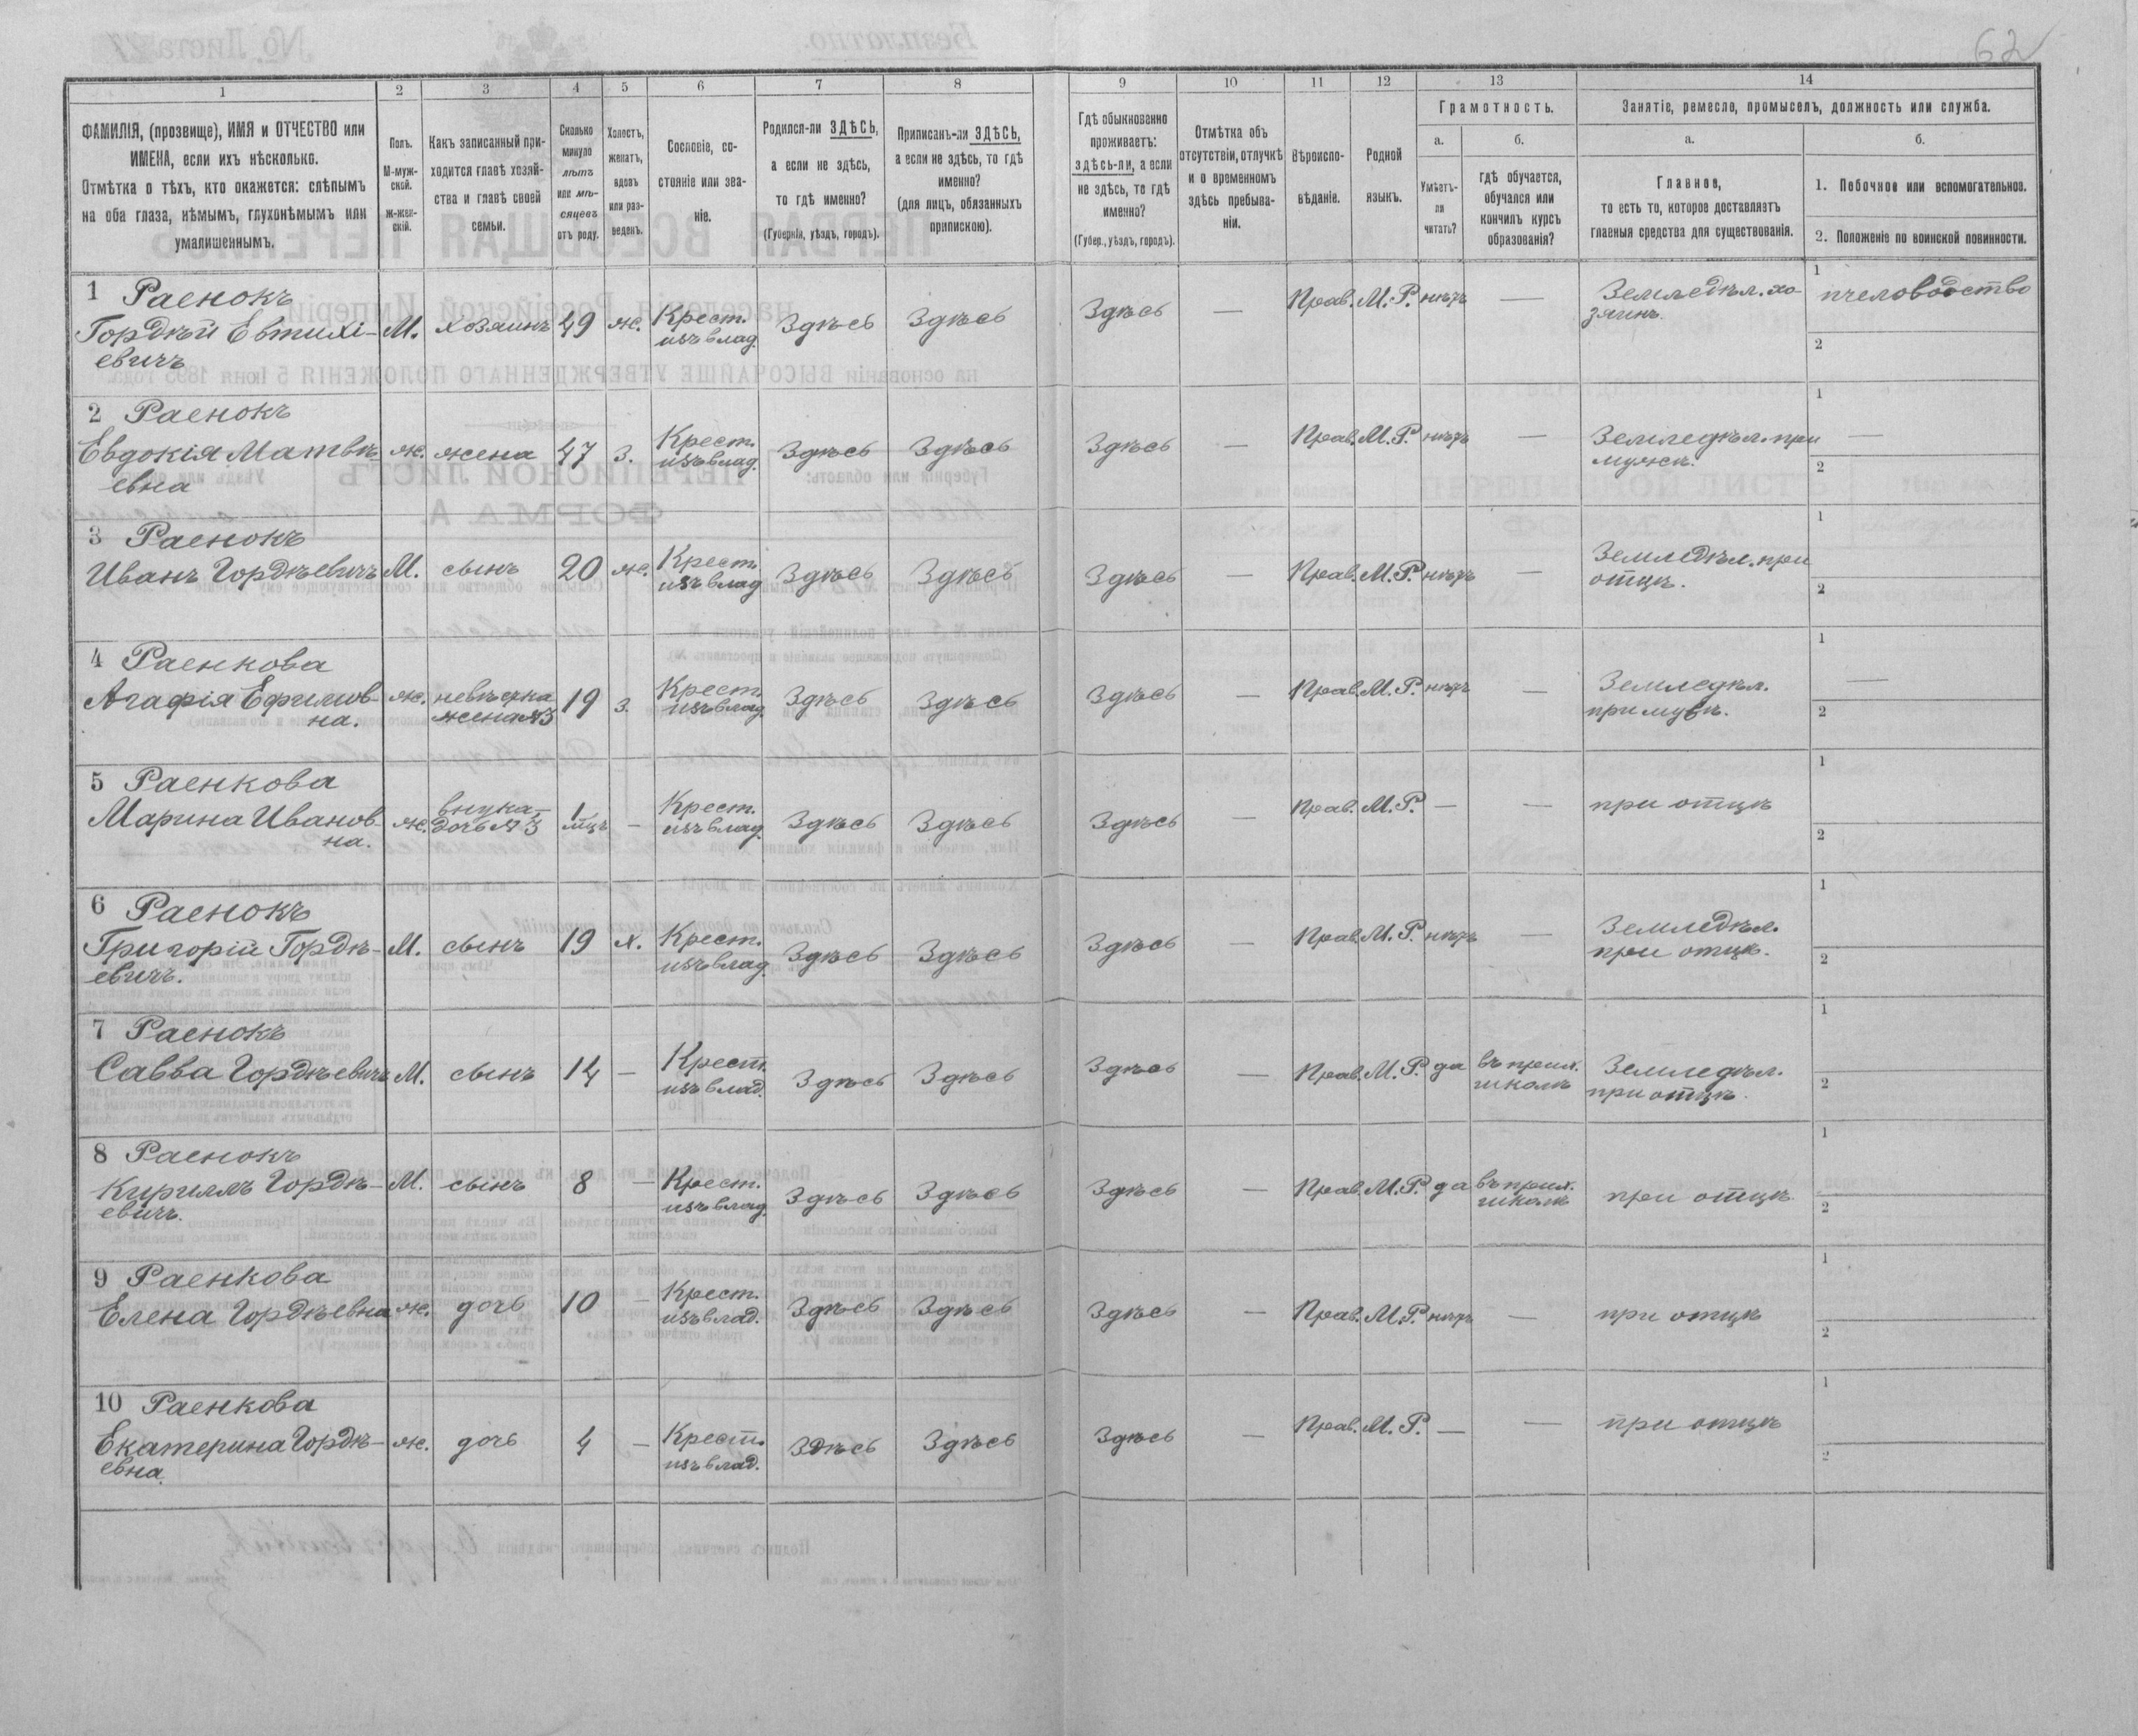 62
1 2 3 4 5 6 7 8 9 10 11 12 13 14
ФАМИЛІЯ, (прозвище), ИМЯ и ОТЧЕСТВО или
ИМЕНА, если ихъ нѣсколько.
Отмѣтка о тѣхъ, кто окажется: слѣпымъ
на оба глаза, нѣмымъ, глухонѣмымъ или
умалишеннымъ.
Полъ.
М-муж-
ской.
Ж-жен-
скій.
Какъ записанный при-
ходится главѣ хозяй-
ства и главѣ своей
семьи.
Сколько
минуло
лѣтъ
или мѣ-
сяцевъ
отъ роду.
Холостъ,
женатъ,
вдовъ
или раз-
веденъ.
Сословіе, со-
стояніе или зва-
ніе.
Родился-ли ЗДѢСЬ,
а если не здѣсь,
то гдѣ именно?
(Губернія, уѣздъ, городъ).
Приписанъ-ли ЗДѢСЬ,
а если не здѣсь, то гдѣ
именно?
(для лицъ, обязанныхъ
припискою).
Гдѣ обыкновенно
проживаетъ:
здѣсь-ли, а если
не здѣсь, то гдѣ
именно?
(Губер., уѣздъ, городъ).
Отмѣтка объ
отсутствіи, отлучкѣ
и о временномъ
здѣсь пребыва-
ніи.
Вѣроиспо-
вѣданіе.
Родной
языкъ.
Грамотность.
а.
Умѣетъ-
ли
читать?
б.
гдѣ обучается,
обучался или
кончилъ курсъ
образованія?
Занятіе, ремесло, промыселъ, должность или служба.
а.
Главное,
то есть то, которое доставляэтъ
главныя средства для существованія.
б.
1. Побочное или вспомогательное.
2. Положеніе по воинской повинности.
1 Раенокъ
Гордѣй Евтихі-
евичъ
М. хозяинъ 49 ж. Крест.
изъ влад.
Здѣсь Здѣсь Здѣсь — Прав. М.Р. нѣтъ — Земледѣл. хо-
зяинъ.
1 пчеловодство
2
2 Раенокъ
Евдокія Матвѣ-
евна
ж. жена 47 з. Крест.
изъ влад.
Здѣсь Здѣсь Здѣсь — Прав. М.Р. нѣтъ — Земледѣл. при
мужѣ.
1 —
2
3 Раенокъ
Иванъ Гордѣевичъ
М. сынъ 20 ж. Крест.
изъ влад
Здѣсь Здѣсь Здѣсь — Прав. М.Р. нѣтъ — Земледѣл. при
отцѣ.
1
2
4 Раенкова
Агафія Ефимов-
на.
ж. невѣстка
жена №3
19 з. Крест.
изъ влад.
Здѣсь Здѣсь Здѣсь — Прав. М.Р. нѣтъ — Земледѣл.
при мужѣ.
1 —
2
5 Раенкова
Марина Иванов-
на.
ж. внука-
дочь №3
1
мѣцъ
— Крест.
изъ влад.
Здѣсь Здѣсь Здѣсь — Прав. М.Р. — — при отцѣ
1
2
6 Раенокъ
Григорій Гордѣ-
евичъ.
М. сынъ 19 х. Крест.
изъ влад.
Здѣсь Здѣсь Здѣсь — Прав. М.Р. нѣтъ — Земледѣл.
при отцѣ.
1
2
7 Раенокъ
Савва Гордѣевичъ
М. сынъ 14 — Крест.
изъ влад.
Здѣсь Здѣсь Здѣсь — Прав. М.Р. да въ прих.
школѣ
Земледѣл.
при отцѣ.
1
2
8 Раенокъ
Кириллъ Гордѣ-
евичъ.
М. сынъ 8 — Крест.
изъ влад.
Здѣсь Здѣсь Здѣсь — Прав. М.Р. да въ прих.
школѣ
при отцѣ
1
2
9 Раенкова
Елена Гордѣевна
ж. дочь 10 — Крест.
изъ влад.
Здѣсь Здѣсь Здѣсь — Прав. М.Р. нѣтъ — при отцѣ
1
2
10 Раенкова
Екатерина Гордѣ-
евна.
ж. дочь 4 — Крест.
изъ влад.
Здѣсь Здѣсь Здѣсь — Прав. М.Р. — — при отцѣ
1
2